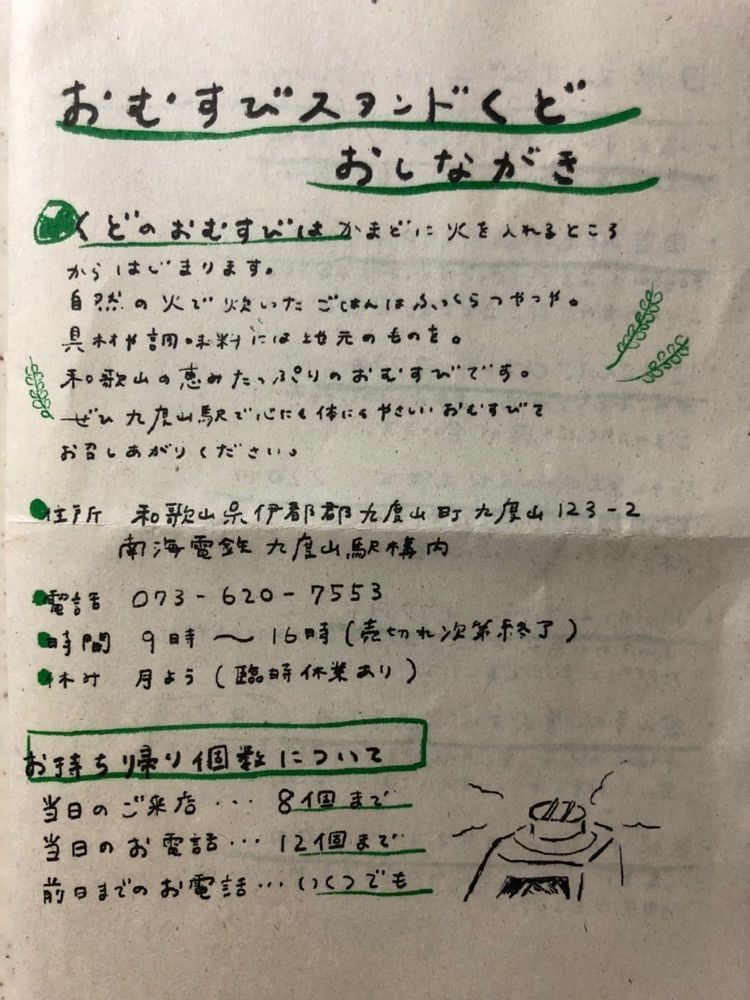 おむすびスタンドくど
おしながき
くどのおむすびは かまどに火を入れるところ
からはじまります。
自然の火で炊いたごはんはふっくらつやつや。
具材や調味料には地元のものを。
和歌山の恵みたっぷりのおむすびです。
ぜひ九度山駅で心にも体にもやさしいおむすびを
お召しあがりください。
住所 和歌山県伊都郡九度山町九度山123-2
南海電鉄九度山駅構内
電話 073-620-7553
時間 9時〜16時(売切れ次第終了)
休み 月よう(臨時休業あり)
お持ち帰り個数について
当日のご来店・・・8個まで
当日のお電話・・・12個まで
前日までのお電話・・・いくつでも